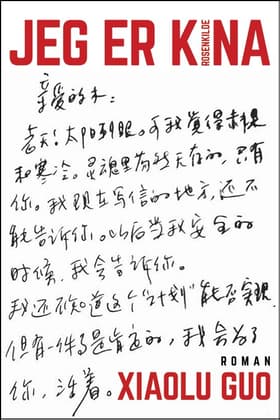 JEG ER KINA
ROSENKILDE
亲爱的木:
老天!太阳刺眼。可我觉得赤裸
和寒冷。灵魂里然存的,只有
你。我现在写信的地方,还不
能告诉你。以后当我安全的
时候,我会告诉你。
我还不知道这个"计划"能否实现,
但有一件事是肯定的,我会为了
你,活着。
ROMAN
XIAOLU GUO